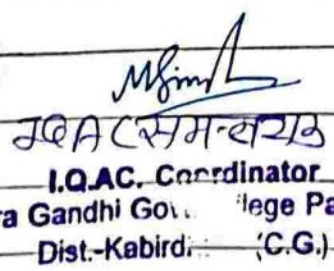 IQAC समन्वयक
I.Q.AC. Coordinator
ra Gandhi Gov. lege Pa
Dist.-Kabird. (C.G.)